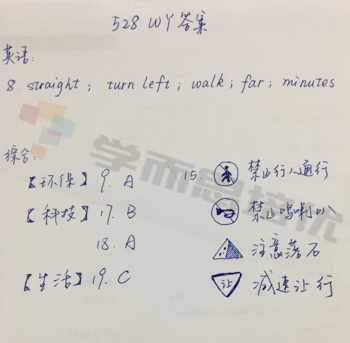 528 WY答案
英语:
8. straight ; turn left ; walk ; far ; minutes
综合:
【环保】 9. A
15. 禁止行人通行
【科技】 17. B
禁止鸣喇叭
18. A
注意落石
【生活】 19. C
让 减速让行
学而思培优